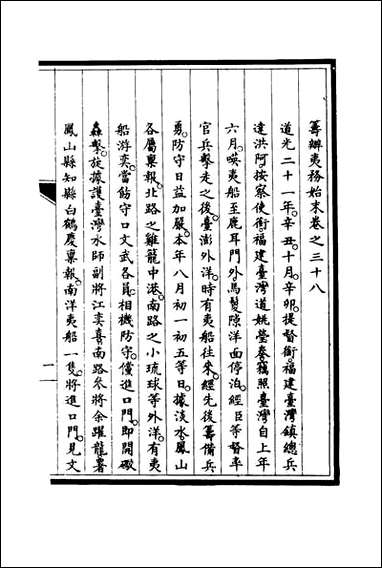 籌辦夷務始末卷之三十八
道光二十一年。辛丑。十月。辛卯。提督銜。福建臺灣鎮總兵
達洪阿按察使銜福建臺灣道姚瑩奏。竊照臺灣自上年
六月。𠸄夷船至鹿耳門外馬鬃隙洋面停泊。經臣等督率
官兵擊走之後。臺澎外洋。時有夷船往來。經先後籌備兵
勇。防守日益加嚴。本年八月初一初五等日。據淡水鳳山
各屬稟報。北路之雞籠中港。南路之小琉球等外洋。有夷
船游奕。當飭守口文武各員。相機防守。儻進口門。即開礮
轟擊。旋據護臺灣水師副將江奕喜南路參將余躍龍署
鳳山縣知縣白鶴慶稟報。南洋夷船一隻。將進口門。見文
一